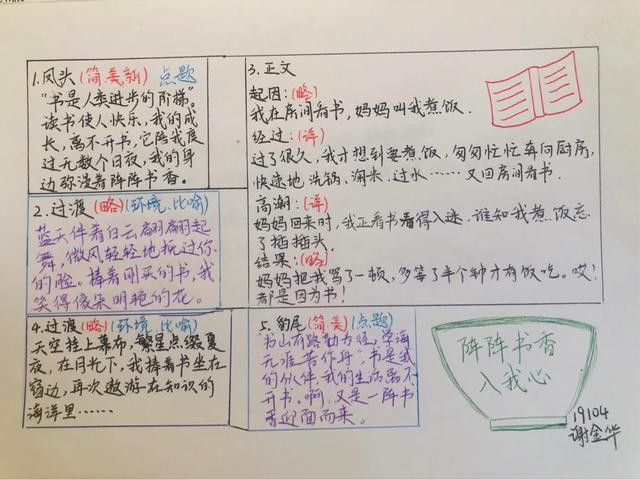 1.凤头(简 美 新) 点题
"书是人类进步的阶梯"。
读书使人快乐,我的成
长,离不开书,它陪我度
过无数个日夜,我的身
边弥漫着阵阵书香。
2.过渡(略)(环境.比喻)
蓝天伴着白云翩翩起
舞,微风轻轻地抚过你
的脸。捧着刚买的书,我
笑得像朵明艳的花。
3.正文
起因:(略)
我在房间看书,妈妈叫我煮饭.
经过:(详)
过了很久,我才想到要煮饭,匆匆忙忙奔向厨房,
快速地 洗锅、淘米、过水……又回房间看书.
高潮:(详)
妈妈回来时,我正看书看得入迷.谁知我煮饭忘
了插插头.
结果:(略)
妈妈把我骂了一顿,多等了半个钟才有饭吃。哎!
都是因为书!
4.过渡(略)(环境 比喻)
天空挂上幕布,繁星点缀夏
夜,在月光下,我捧着书坐在
窗边,再次遨游在知识的
海洋里……
5.豹尾(简美)(点题)
"书山有路勤为径,学海
无涯苦作舟",书是我
的伙伴.我的生活离不
开书.啊,又是一阵书
香迎面而来.
阵阵书香
入我心
19104
谢金华